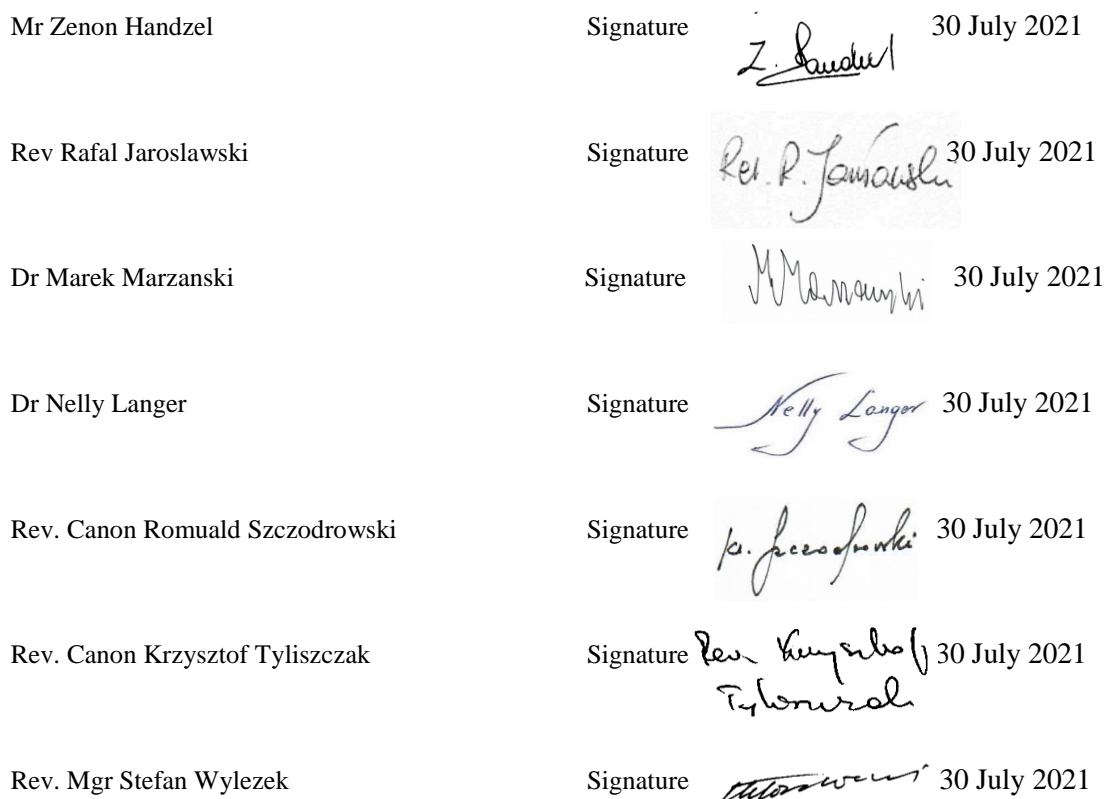 Mr Zenon Handzel Signature Z. Handzel 30 July 2021
Rev Rafal Jaroslawski Signature Rev. R. Jarosławski 30 July 2021
Dr Marek Marzanski Signature M Marzanski 30 July 2021
Dr Nelly Langer Signature Nelly Langer 30 July 2021
Rev. Canon Romuald Szczodrowski Signature ks. Szczodrowski 30 July 2021
Rev. Canon Krzysztof Tyliszczak Signature Rev. Krzysztof 30 July 2021
Tyliszczak
Rev. Mgr Stefan Wylezek Signature 30 July 2021